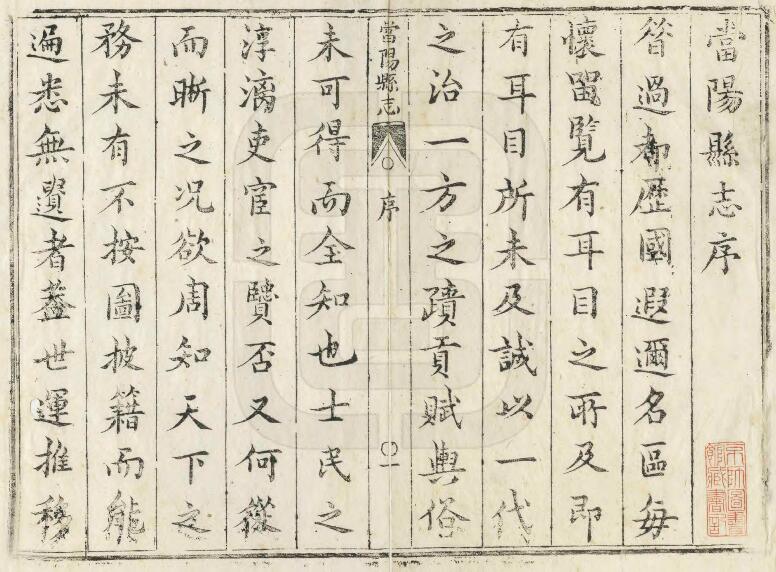 當陽縣志序
過都歷國遐邇名區每
懷畱覽有耳目之所及即
有耳目所未及誠以一代
之治一方之蹟貢賦輿俗
當陽縣志 序 一
未可得而全知也士民之
淳漓吏宦之贒否又何徵
而晰之况欲周知天下之
務未有不按圖披籍而能
遍悉無遺者葢世運推移
京師圖書
館藏書記